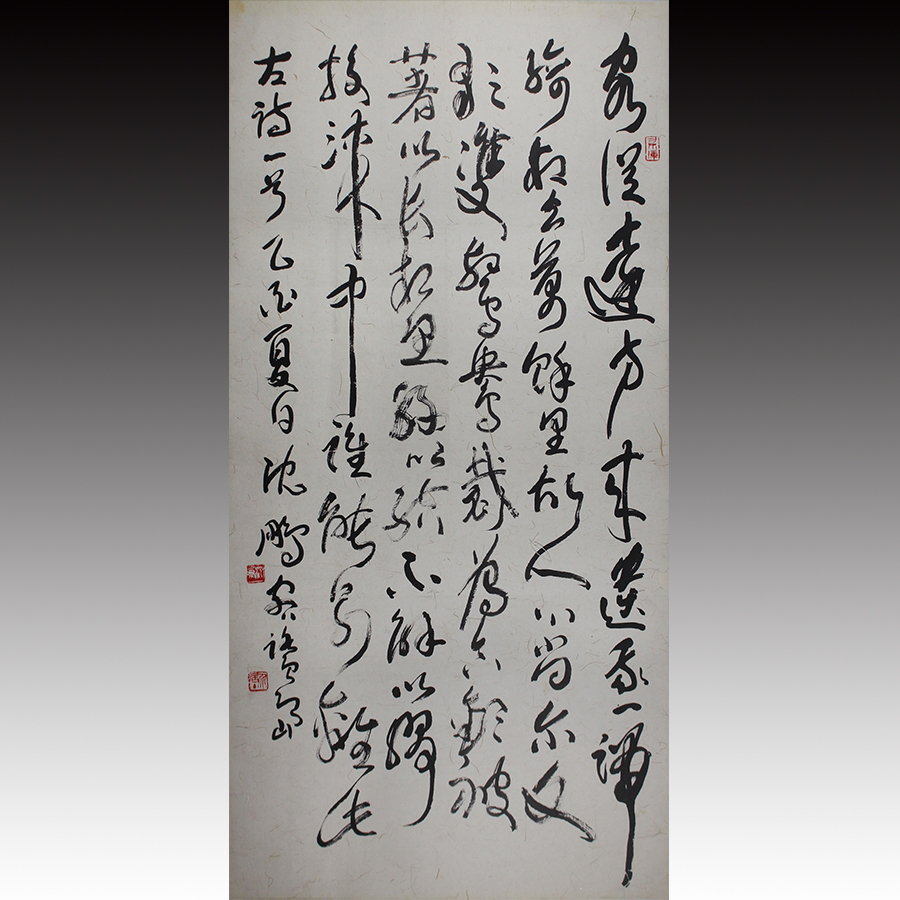 客從遠方來遺我一端
綺相去萬餘里故人心尚爾文
彩雙鴛鴦裁為合歡被
著以長相思緣以結不解以膠
投漆中誰能別離此
古詩一首乙酉夏日沈鵬